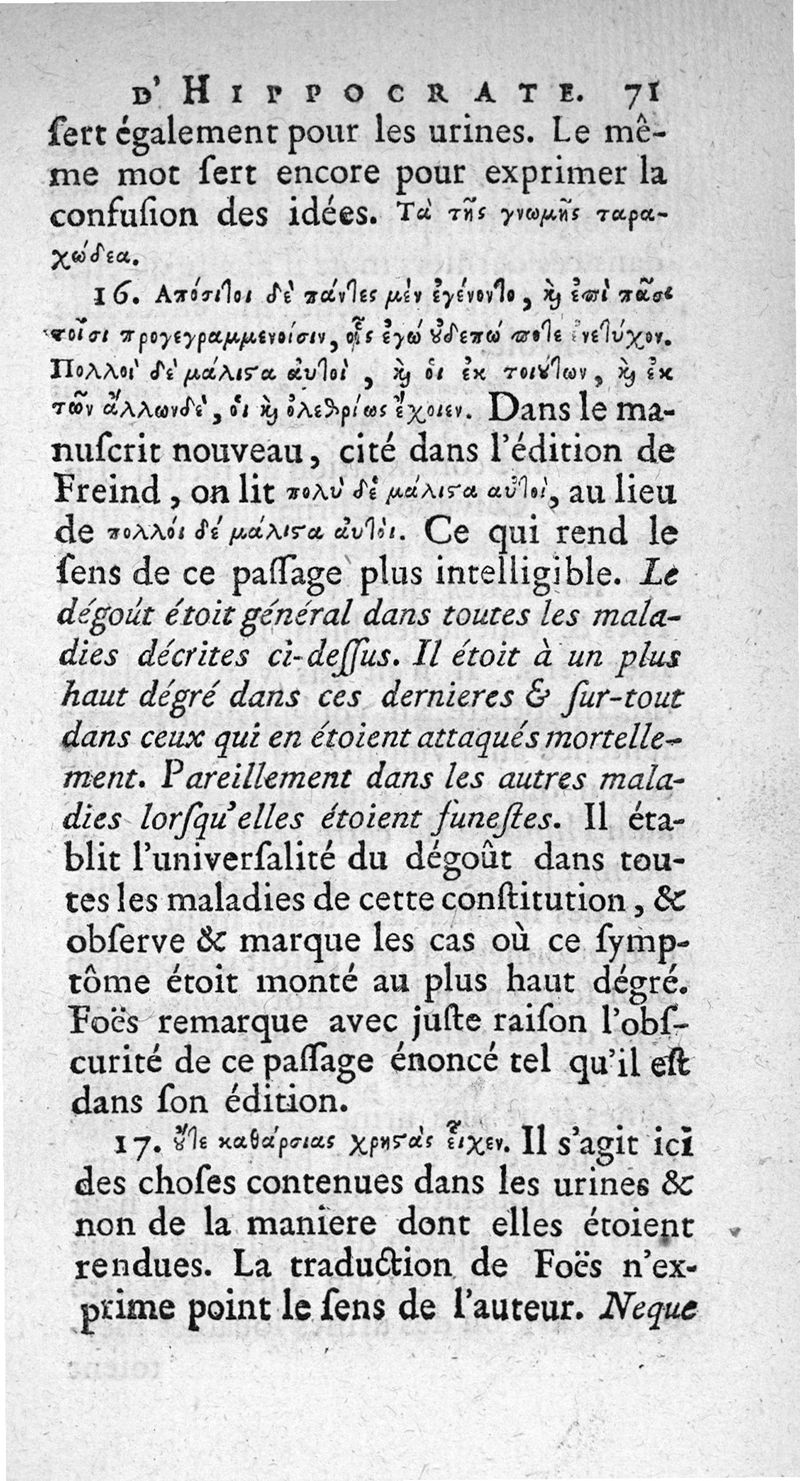 D'HIPPOCRATE. 71
ſert également pour les urines. Le mê-
me mot ſert encore pour exprimer la
confuſion des idées. Τὰ τῆς γνωμῆς ταρα-
χώδεα.
16. Απόσιτοι δὲ πάντες μὲν ἐγένοντο, ϗ ἐπὶ πᾶσι
τοῖσι προγεγραμμενοίσιν, οἷς ἐγώ ȣδεπώ ποτε ἐνετύχον.
Πολλοὶ δὲ μάλιϛα ἀυτοὶ, ϗ ὁι ἐκ τοιȣ́των, ϗ ἐκ
τῶν ἄλλωνδὲ, ὁι ϗ ὀλεθρίως ἔχοιεν. Dans le ma-
nuſcrit nouveau, cité dans l'édition de
Freind, on lit πολὺ δὲ μάλιϛα αὐτοὶ, au lieu
de πολλόι δέ μάλιϛα ἀυτὸι. Ce qui rend le
ſens de ce paſſage plus intelligible. Le
dégoût étoit général dans toutes les mala-
dies décrites ci-deſſus. Il étoit à un plus
haut dégré dans ces dernieres & ſur-tout
dans ceux qui en étoient attaqués mortelle-
ment. Pareillement dans les autres mala-
dies lorſqu'elles étoient funeſtes. Il éta-
blit l'univerſalité du dégoût dans tou-
tes les maladies de cette conſtitution, &
obſerve & marque les cas où ce ſymp-
tôme étoit monté au plus haut dégré.
Foës remarque avec juſte raiſon l'obſ-
curité de ce paſſage énoncé tel qu'il eſt
dans ſon édition.
17. ȣ̓́τε καθάρσιας χρηϛὰς εἶχεν. Il s'agit ici
des choſes contenues dans les urines &
non de la maniere dont elles étoient
rendues. La traduction de Foës n'ex-
prime point le ſens de l'auteur. Neque